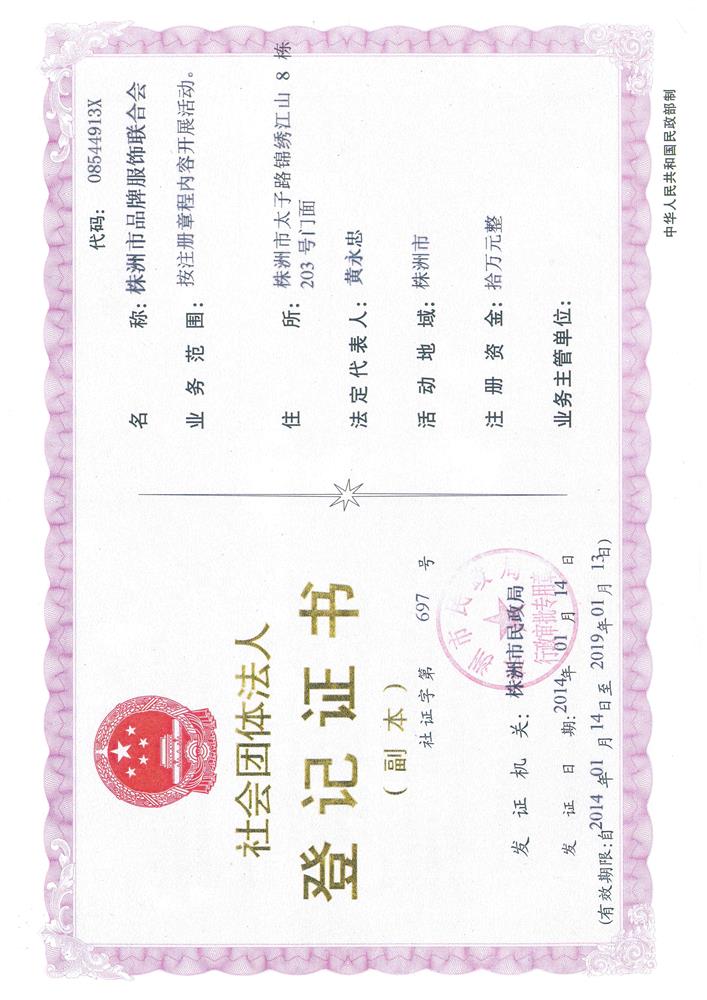 社会团体法人
登记证书
(副本)
社证字第 697 号
发证机关：株洲市民政局
发证日期：2014年 01 月 14 日
(有效期限：自2014年01月14日至2019年01月13日)
株洲市民政局
行政审批专用章
代码：08544913X
名称：株洲市品牌服饰联合会
业务范围：按注册章程内容开展活动。
住所：株洲市太子路锦绣江山 8 栋
203 号门面
法定代表人：黄永忠
活动地域：株洲市
注册资金：拾万元整
业务主管单位：
中华人民共和国民政部制